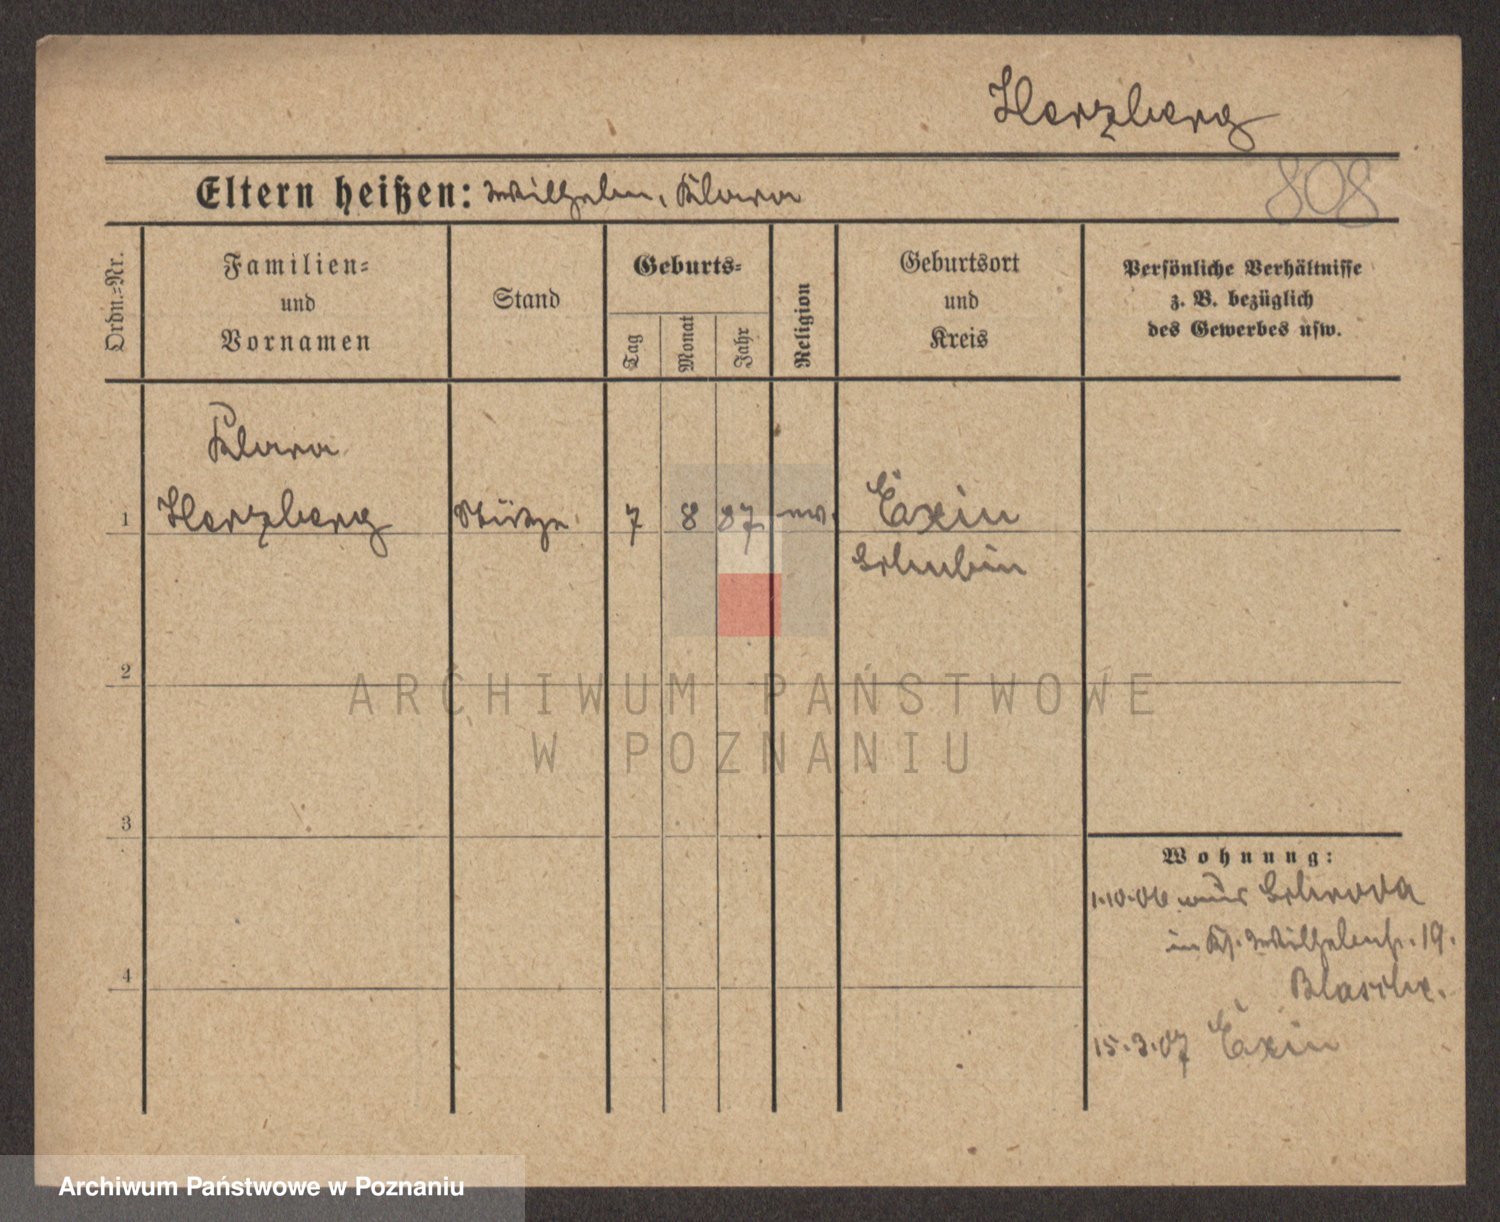 Herzberg
808
Eltern heißen: Wilhelm, Klara
Ordn.=Nr.
Familien=
und
Vornamen
Stand
Geburts=
Tag
Monat
Jahr
Religion
Geburtsort
und
Kreis
Persönliche Verhältnisse
z. B. bezüglich
des Gewerbes usw.
Klara
1 Herzberg Stütze 7 8 87 ev. Exin
Schubin
2
3
4
Wohnung:
1.10.06 aus Schroda
in Wilhelmstr. 19.
Blaschke.
15.3.07 Exin
ARCHIWUM PAŃSTWOWE
W POZNANIU
Archiwum Państwowe w Poznaniu